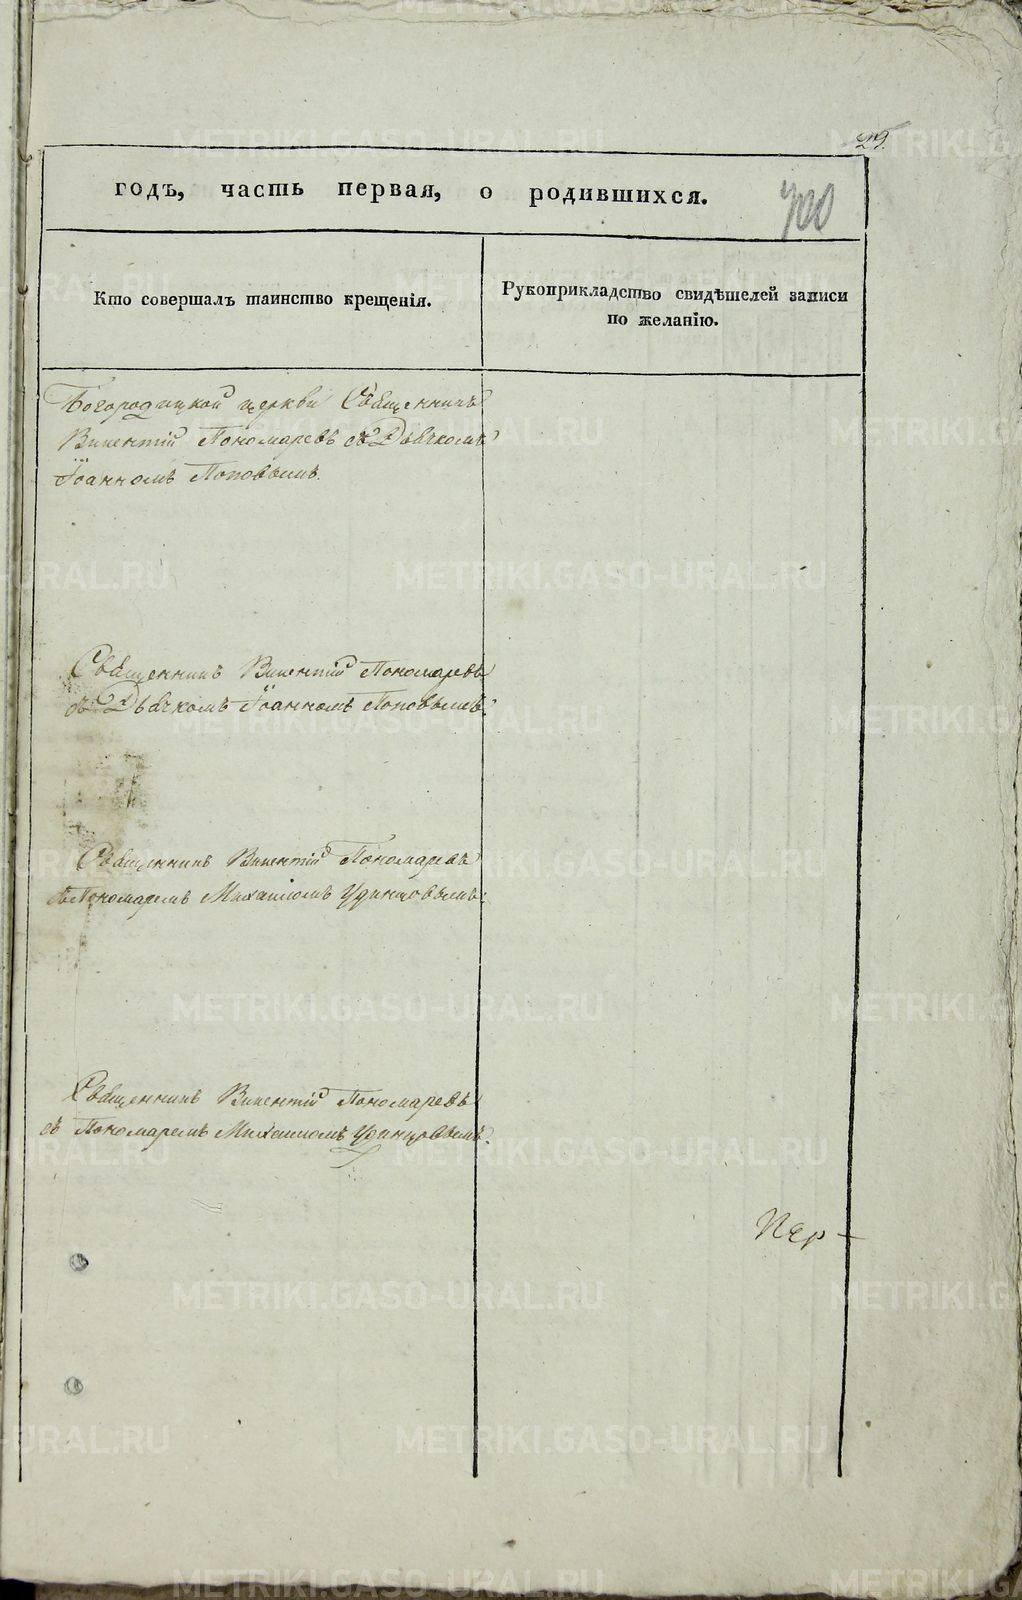 29.
годъ, часть первая, о родившихся.
700
Кто совершалъ таинство крещенія.
Рукоприкладство свидѣтелей записи
по желанію.
Богородицкой церкви Священникъ
Викентій Пономаревъ съ Дьячкомъ
Іоанномъ Поповымъ.
Священникъ Викентій Пономаревъ
съ Дьячкомъ Іоанномъ Поповымъ.
Священникъ Викентій Пономаревъ
съ Пономаремъ Михаиломъ Удинцовымъ.
Священникъ Викентій Пономаревъ
съ Пономаремъ Михаиломъ Удинцовымъ.
METRIKI.GASO-URAL.RU